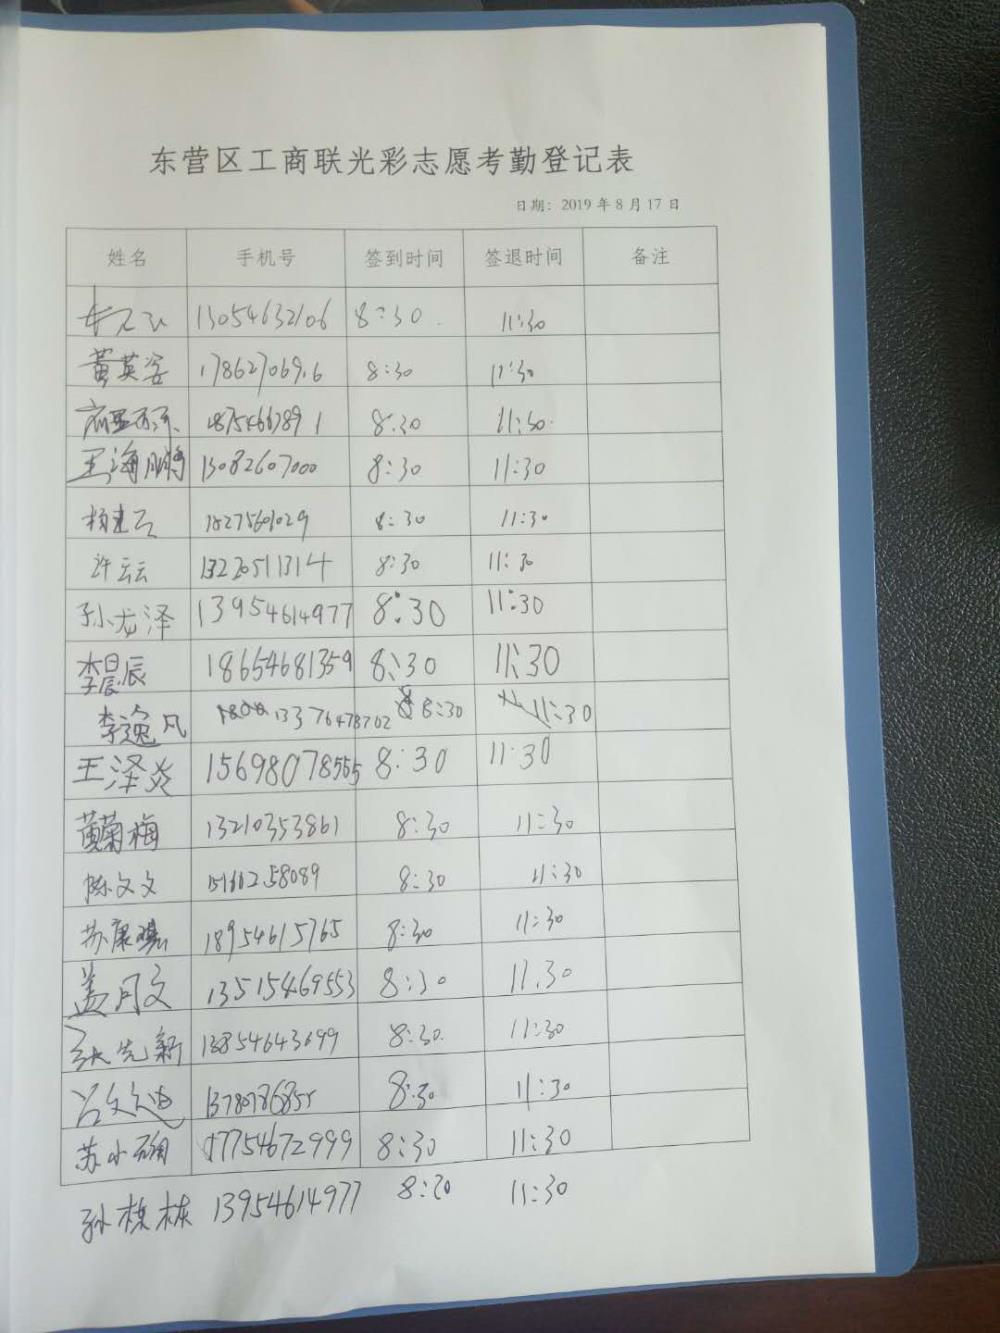 东营区工商联光彩志愿考勤登记表
日期：2019年8月17日
姓名 手机号 签到时间 签退时间 备注
13054632106 8:30 11:30
黄英姿 8:30 11:30
8:30 11:30
王海鹏 13082607000 8:30 11:30
杨建云 8:30 11:30
许云云 13220511314 8:30 11:30
孙龙泽 13954614977 8:30 11:30
李晨辰 18654681359 8:30 11:30
李逸凡 13376478702 8:30 11:30
王泽炎 15698078555 8:30 11:30
黄菊梅 13210353861 8:30 11:30
陈文文 8:30 11:30
苏康 18954615765 8:30 11:30
盖月文 13515469553 8:30 11.30
张先新 13854643699 8:30 11:30
8:30 11:30
苏小 17754672999 8:30 11:30
孙栋栋 13954614977 8:30 11:30